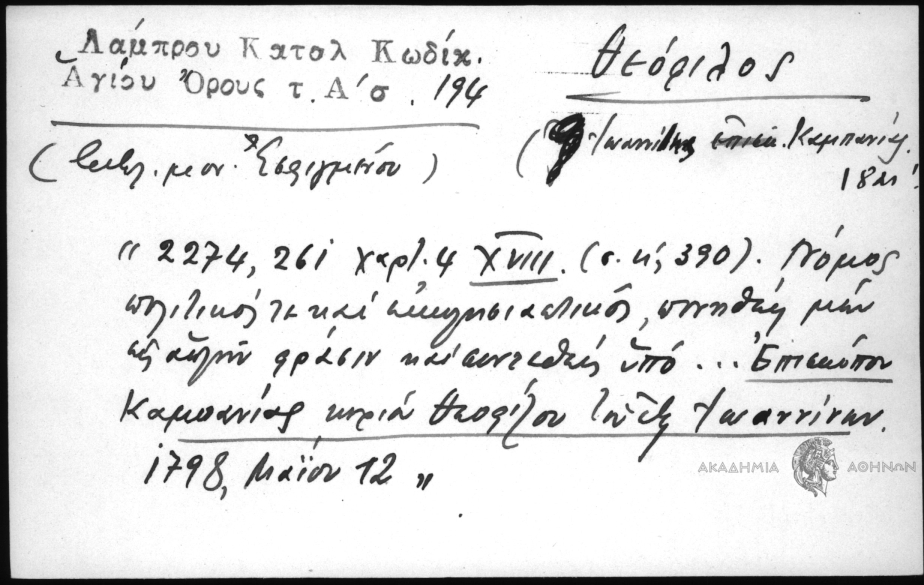 Λάμπρου Καταλ Κωδίκ.
Ἁγίου Ὄρους τ. Α΄ σ. 194
Θεόφιλος
(βιβλ. μον. Ἐσφιγμένου)
( Ἰωαννίτης ἐπίσκ. Καμπανίας.
18
« 2274, 261 χαρτ. 4 XVIII. (σ. κ΄, 390). Νόμος
πολιτικός τε καί ἐκκλησιαστικός, πονηθείς μέν
εἰς ἁπλῆν φράσιν καί συντεθείς ὑπό ... Ἐπισκόπου
Καμπανίας κυρίου Θεοφίλου τοῦ ἐξ Ἰωαννίνων.
1798, Μαΐου 12 »
ΑΚΑΔΗΜΙΑ ΑΘΗΝΩΝ